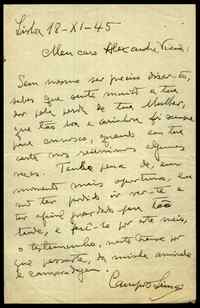 Lisboa 18-XI-45
Meu caro Alexandre Vieira:
Sem mesmo ser preciso dizer-to,
sabes que senti muito a tua
dor pela perda de tua Mulher,
que tão boa e carinhosa foi sempre
para connosco, quando em tua
casa nos reunimos algumas
vezes. Tenho pena de, em
momento mais oportuno, eu
não ter podido ir ver-te e
ter afinal guardado para tão
tarde, e fazê-lo por este meio,
o testemunho, neste transe por
que passaste, da minha amizade
e camaradagem.
Campos Lima